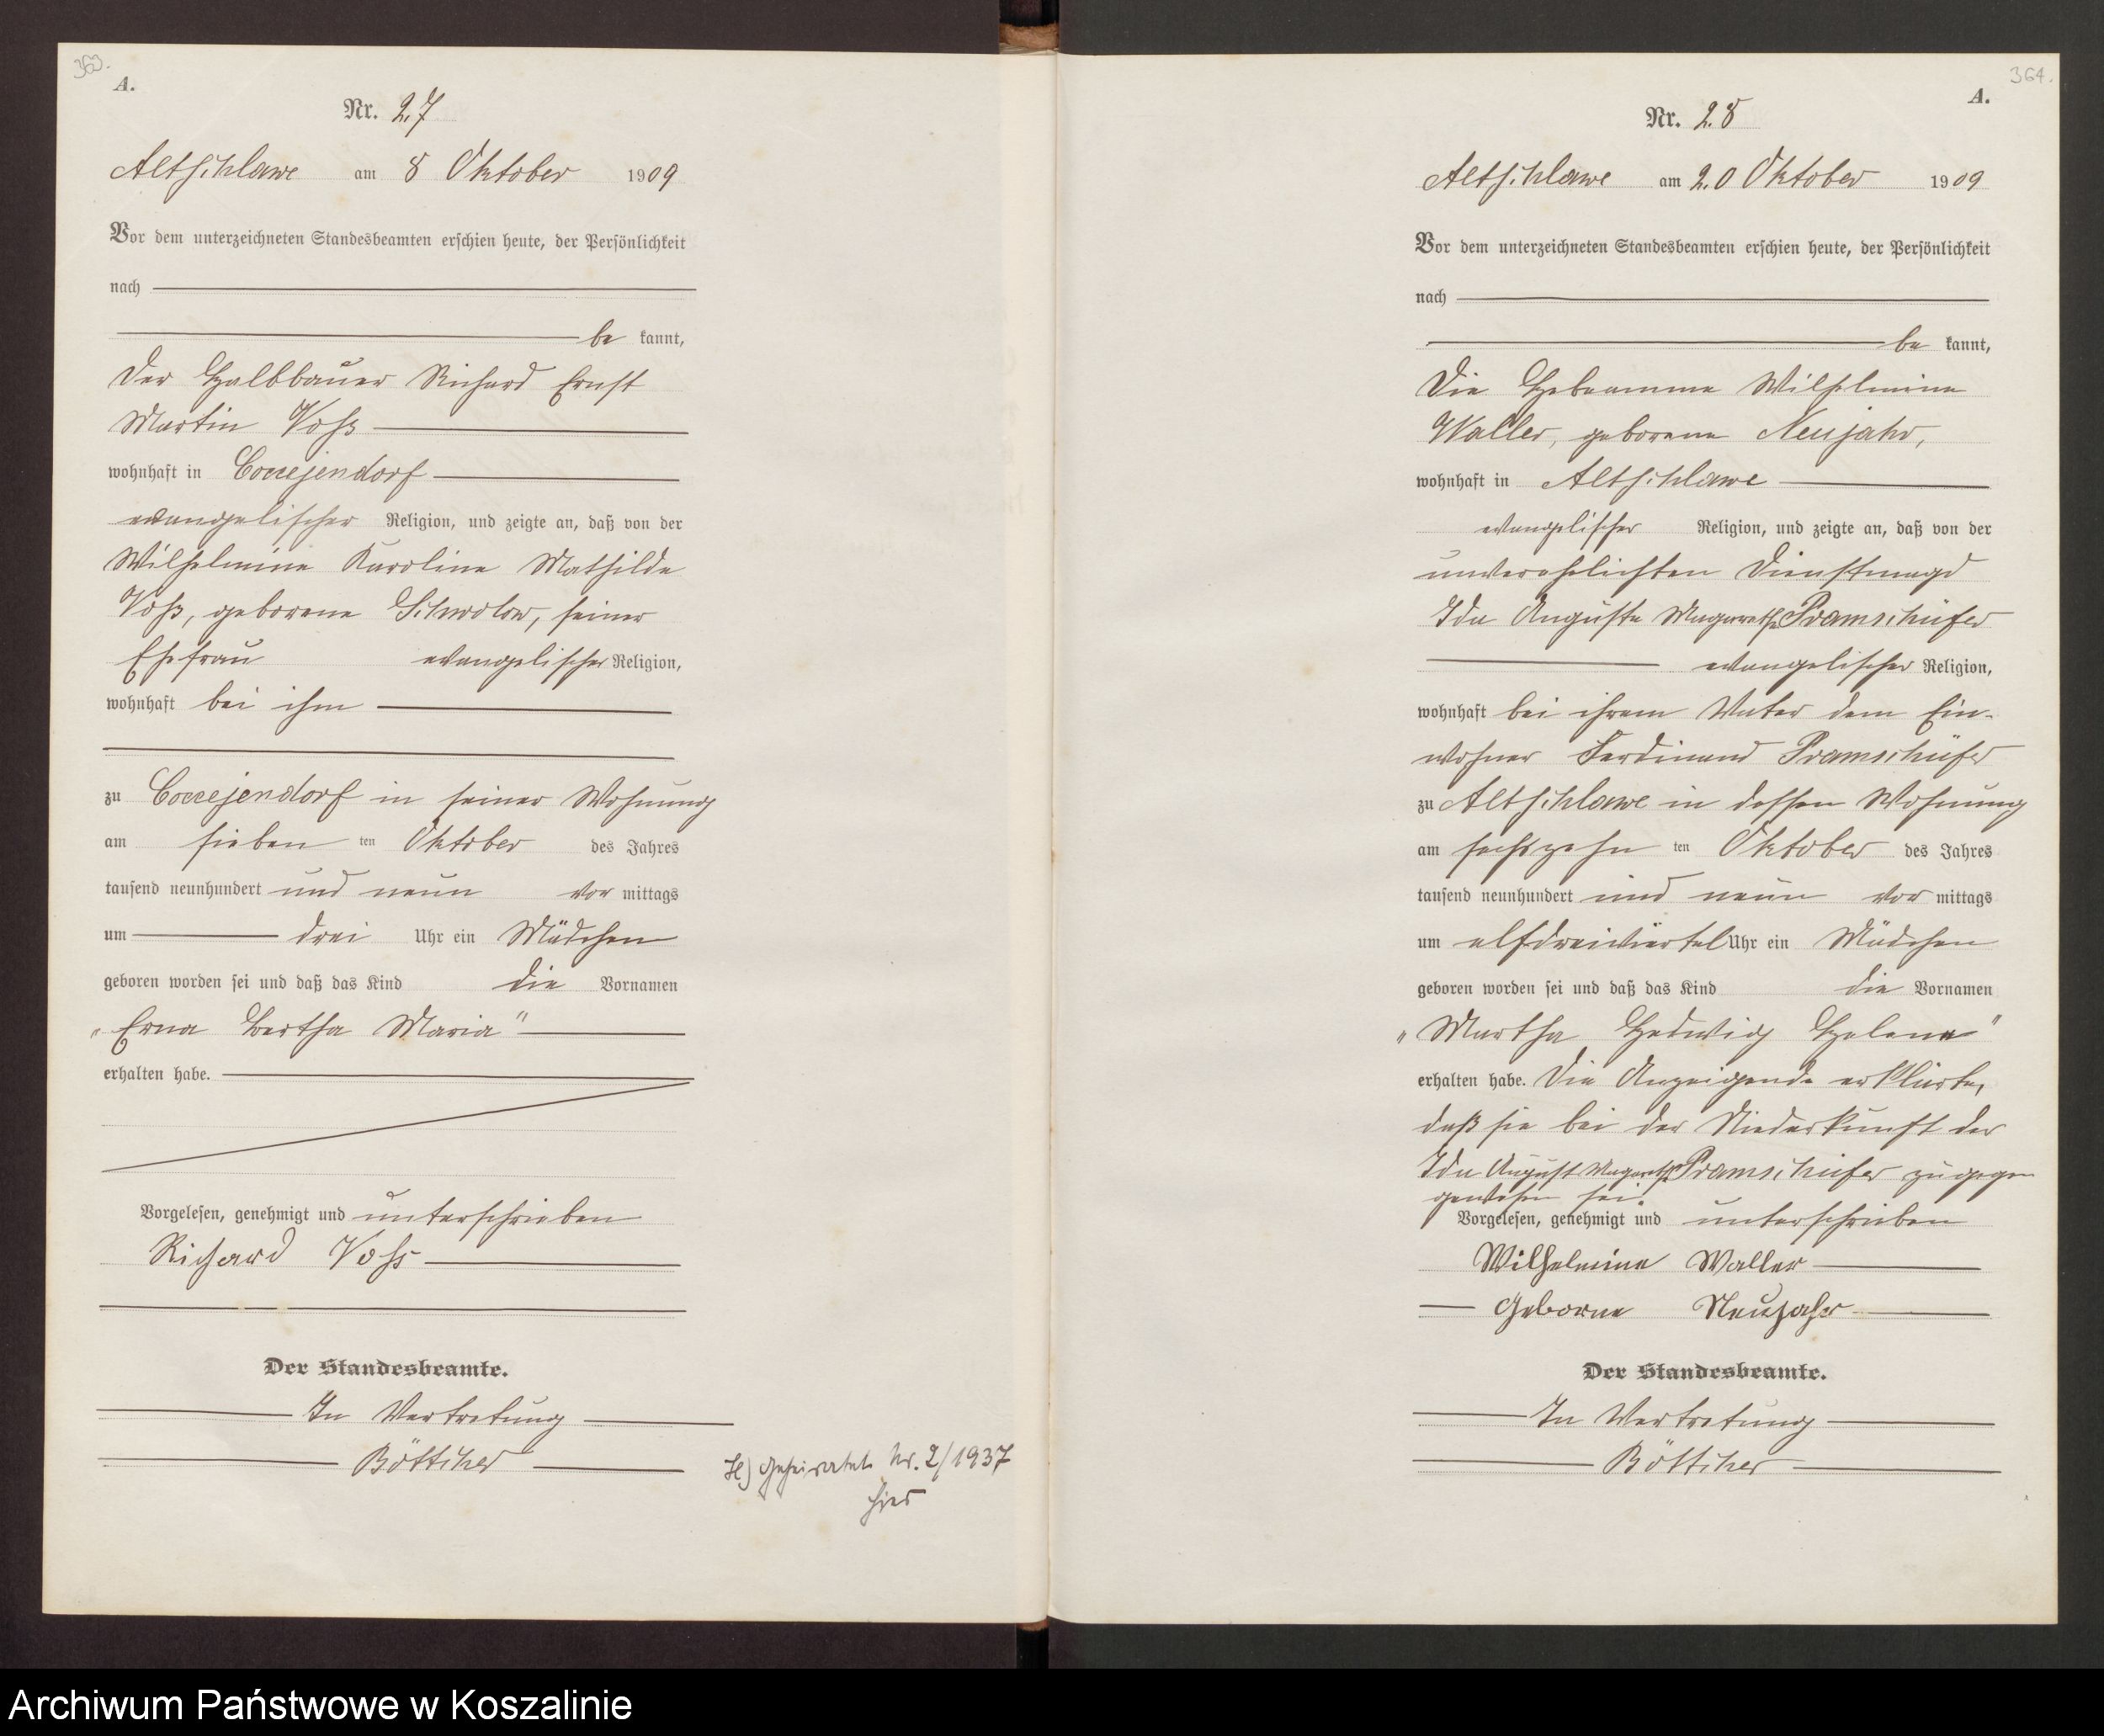 363.
A.
Nr. 27
Altschlawe am 8 Oktober 1909
Vor dem unterzeichneten Standesbeamten erschien heute, der Persönlichkeit
nach
be kannt,
der Halbbauer Richard Ernst
Martin Voß
wohnhaft in Coccejendorf
evangelischer Religion, und zeigte an, daß von der
Wilhelmine Karoline Mathilde
Voß, geborene Schwolow, seiner
Ehefrau evangelischer Religion,
wohnhaft bei ihm
zu Coccejendorf in seiner Wohnung
am sieben ten Oktober des Jahres
tausend neunhundert und neun vor mittags
um drei Uhr ein Mädchen
geboren worden sei und daß das Kind die Vornamen
„Erna Bertha Maria"
erhalten habe.
Vorgelesen, genehmigt und unterschrieben
Richard Voß
Der Standesbeamte.
In Vertretung
Böttcher
geheiratet Nr. 2/1937
hier
364.
A.
Nr. 28
Altschlawe am 20 Oktober 1909
Vor dem unterzeichneten Standesbeamten erschien heute, der Persönlichkeit
nach
be kannt,
die Hebeamme Wilhelmine
Waller, geborene Neujahr,
wohnhaft in Altschlawe
evangelischer Religion, und zeigte an, daß von der
unverehelichten Dienstmagd
Ida Auguste Magareth Pramschüfer
evangelischer Religion,
wohnhaft bei ihrem Vater dem Ein-
wohner Ferdinand Pramschüfer
zu Altschlawe in dessen Wohnung
am sechszehn ten Oktober des Jahres
tausend neunhundert und neun vor mittags
um elfdreiviertel Uhr ein Mädchen
geboren worden sei und daß das Kind die Vornamen
„Martha Hedwig Helene"
erhalten habe. Die Anzeigende erklärte,
daß sie bei der Niederkunft der
Ida August Magareth Pramschüfer zugegen
gewesen sei.
Vorgelesen, genehmigt und unterschrieben
Wilhelmine Waller
Geborne Neujahr
Der Standesbeamte.
In Vertretung
Böttcher
Archiwum Państwowe w Koszalinie